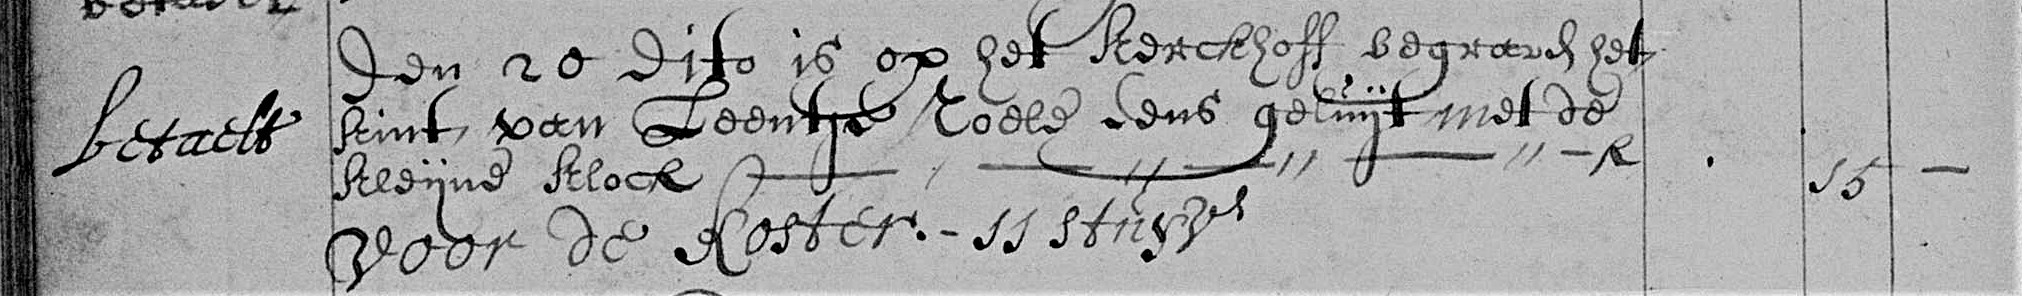 betaelt
Den 20 dito is op het Kerckhoff begraven het
kint van Leentje Roele eens geluijt met de
kleijne klock — „ — „ — „ — „ – R 15 —
Voor de Koster.- 11 stuyv